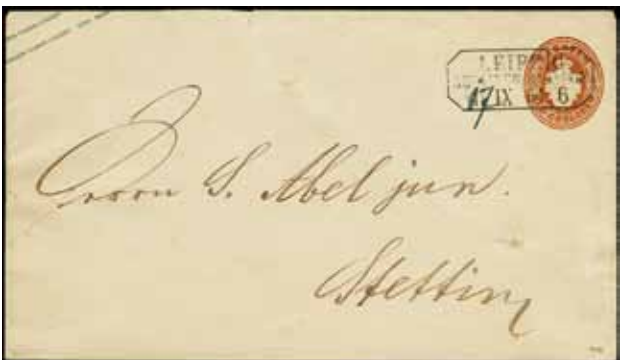 LEIPZIG
17 IX 6
Herrn S. Abel jun.
Stettin